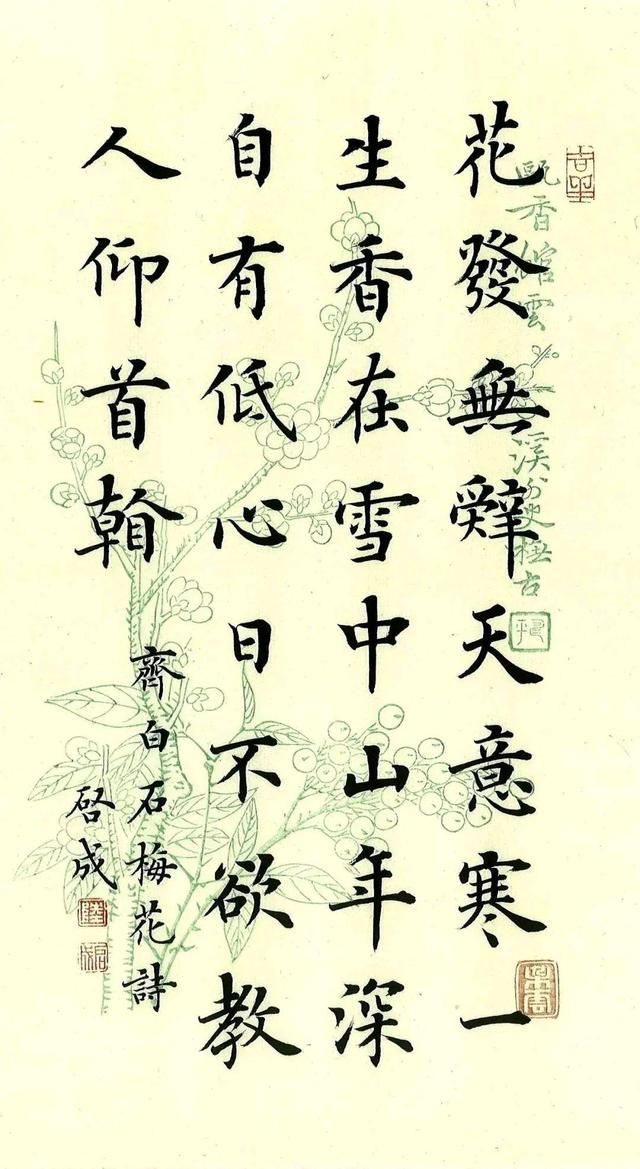 花發無辭天意寒一
生香在雪中山年深
自有低心日不欲教
人仰首
齊白石梅花詩
啓成
甌香館雲溪外史橅古